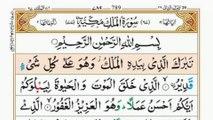 ٦٧ سُوْرَةُ الْمُلْكِ مَكِّيَّةٌ
بِسْمِ اللّٰهِ الرَّحْمٰنِ الرَّحِيْمِ
تَبٰرَكَ الَّذِيْ بِيَدِهِ الْمُلْكُ وَهُوَ عَلٰى كُلِّ شَيْءٍ
قَدِيْرُ الَّذِيْ خَلَقَ الْمَوْتَ وَالْحَيٰوةَ لِيَبْلُوَكُمْ
اَيُّكُمْ اَحْسَنُ عَمَلًا وَهُوَ الْعَزِيْزُ الْغَفُوْرُ الَّذِيْ